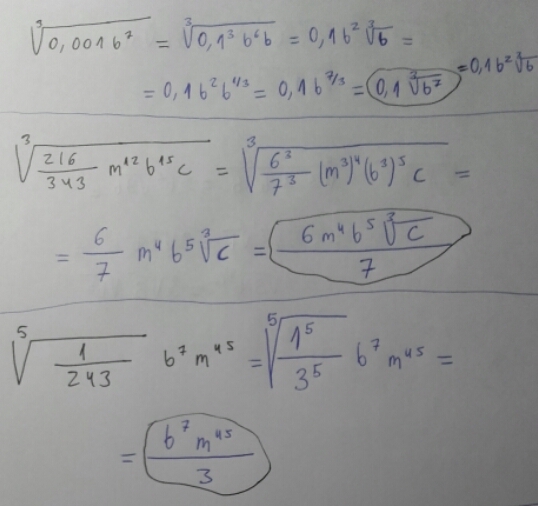 ∛(0,001b⁷) = ∛(0,1³b⁶b) = 0,1b²∛b =
= 0,1b²b^(1/3) = 0,1b^(7/3) = 0,1∛(b⁷) = 0,1b²∛b
∛(216/343 m¹²b¹⁵c) = ∛(6³/7³ (m³)⁴(b³)⁵c) =
= 6/7 m⁴b⁵∛c = 6m⁴b⁵∛c/7
⁵√(1/243) b⁷m⁴⁵ = ⁵√(1⁵/3⁵) b⁷m⁴⁵ =
= b⁷m⁴⁵/3